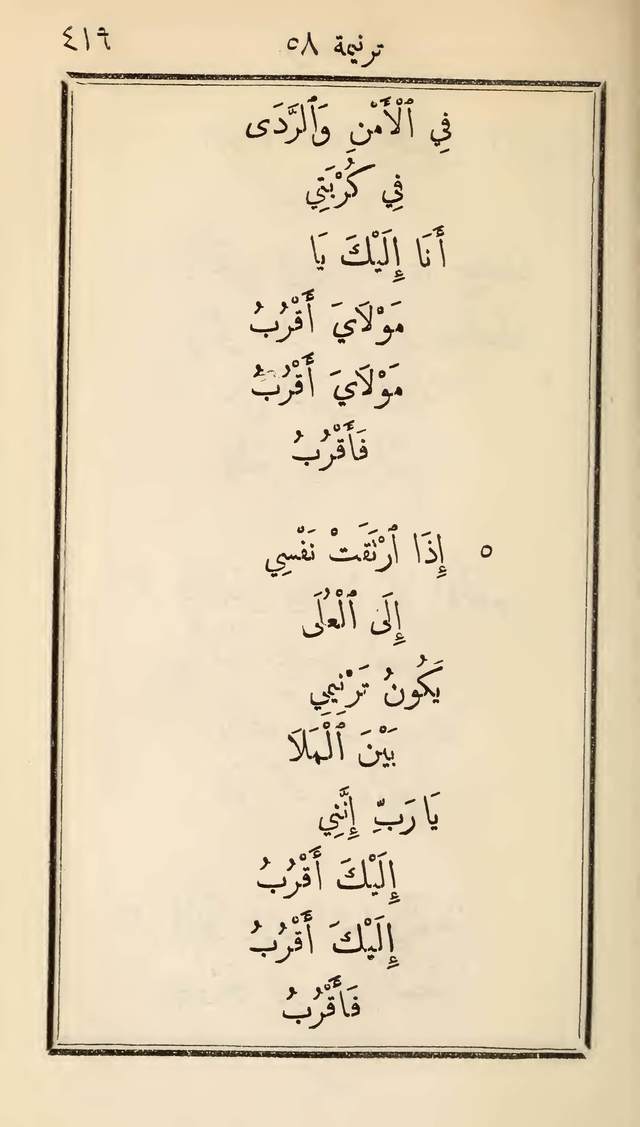 ترنيمة ٥٨ ٤١٩
فِي ٱلْأَمْنِ وَٱلرَّدَى
فِي كُرْبَتِي
أَنَا إِلَيْكَ يَا
مَوْلَايَ أَقْرُبُ
مَوْلَايَ أَقْرُبُ
فَأَقْرُبُ
٥ إِذَا ٱرْتَقَتْ نَفْسِي
إِلَى ٱلْعُلَى
يَكُونُ تَرْنِيمِي
بَيْنَ ٱلْمَلَا
يَا رَبِّ إِنَّنِي
إِلَيْكَ أَقْرُبُ
إِلَيْكَ أَقْرُبُ
فَأَقْرُبُ